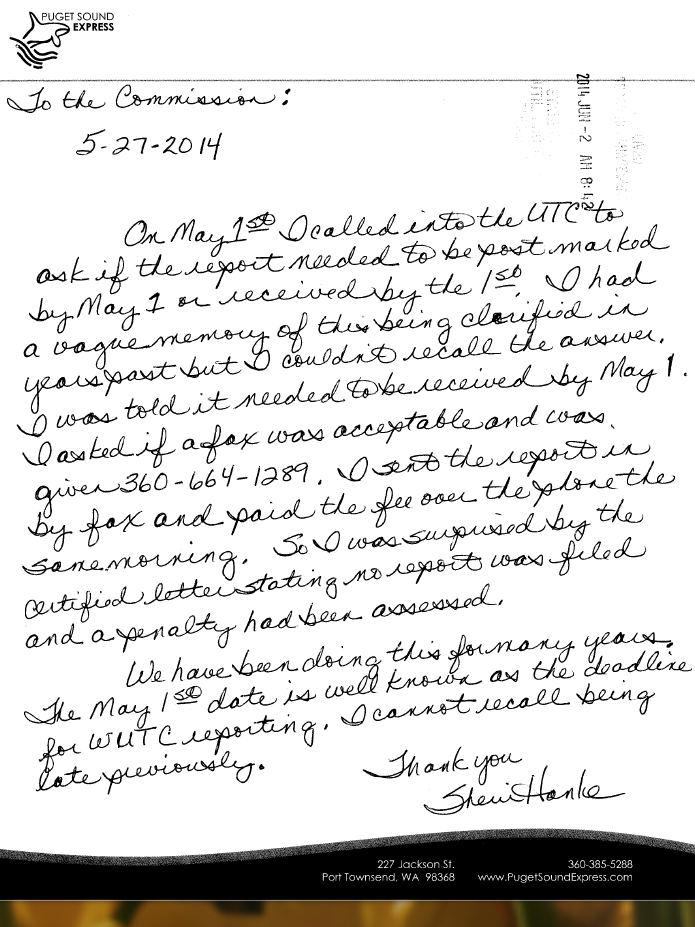 PUGET SOUND
EXPRESS
To the Commission:
5-27-2014
2014 JUN -2 AM 8:42
On May 1st I called into the UTC to
ask if the report needed to be post marked
by May 1 or received by the 1st. I had
a vague memory of this being clarified in
years past but I couldn't recall the answer.
I was told it needed to be received by May 1.
I asked if a fax was acceptable and was
given 360-664-1289. I sent the report in
by fax and paid the fee over the phone the
same morning. So I was surprised by the
certified letter stating no report was filed
and a penalty had been assessed.
We have been doing this for many years.
The May 1st date is well known as the deadline
for WUTC reporting. I cannot recall being
late previously.
Thank you
Sherri Hanke
227 Jackson St.
Port Townsend, WA 98368
360-385-5288
www.PugetSoundExpress.com